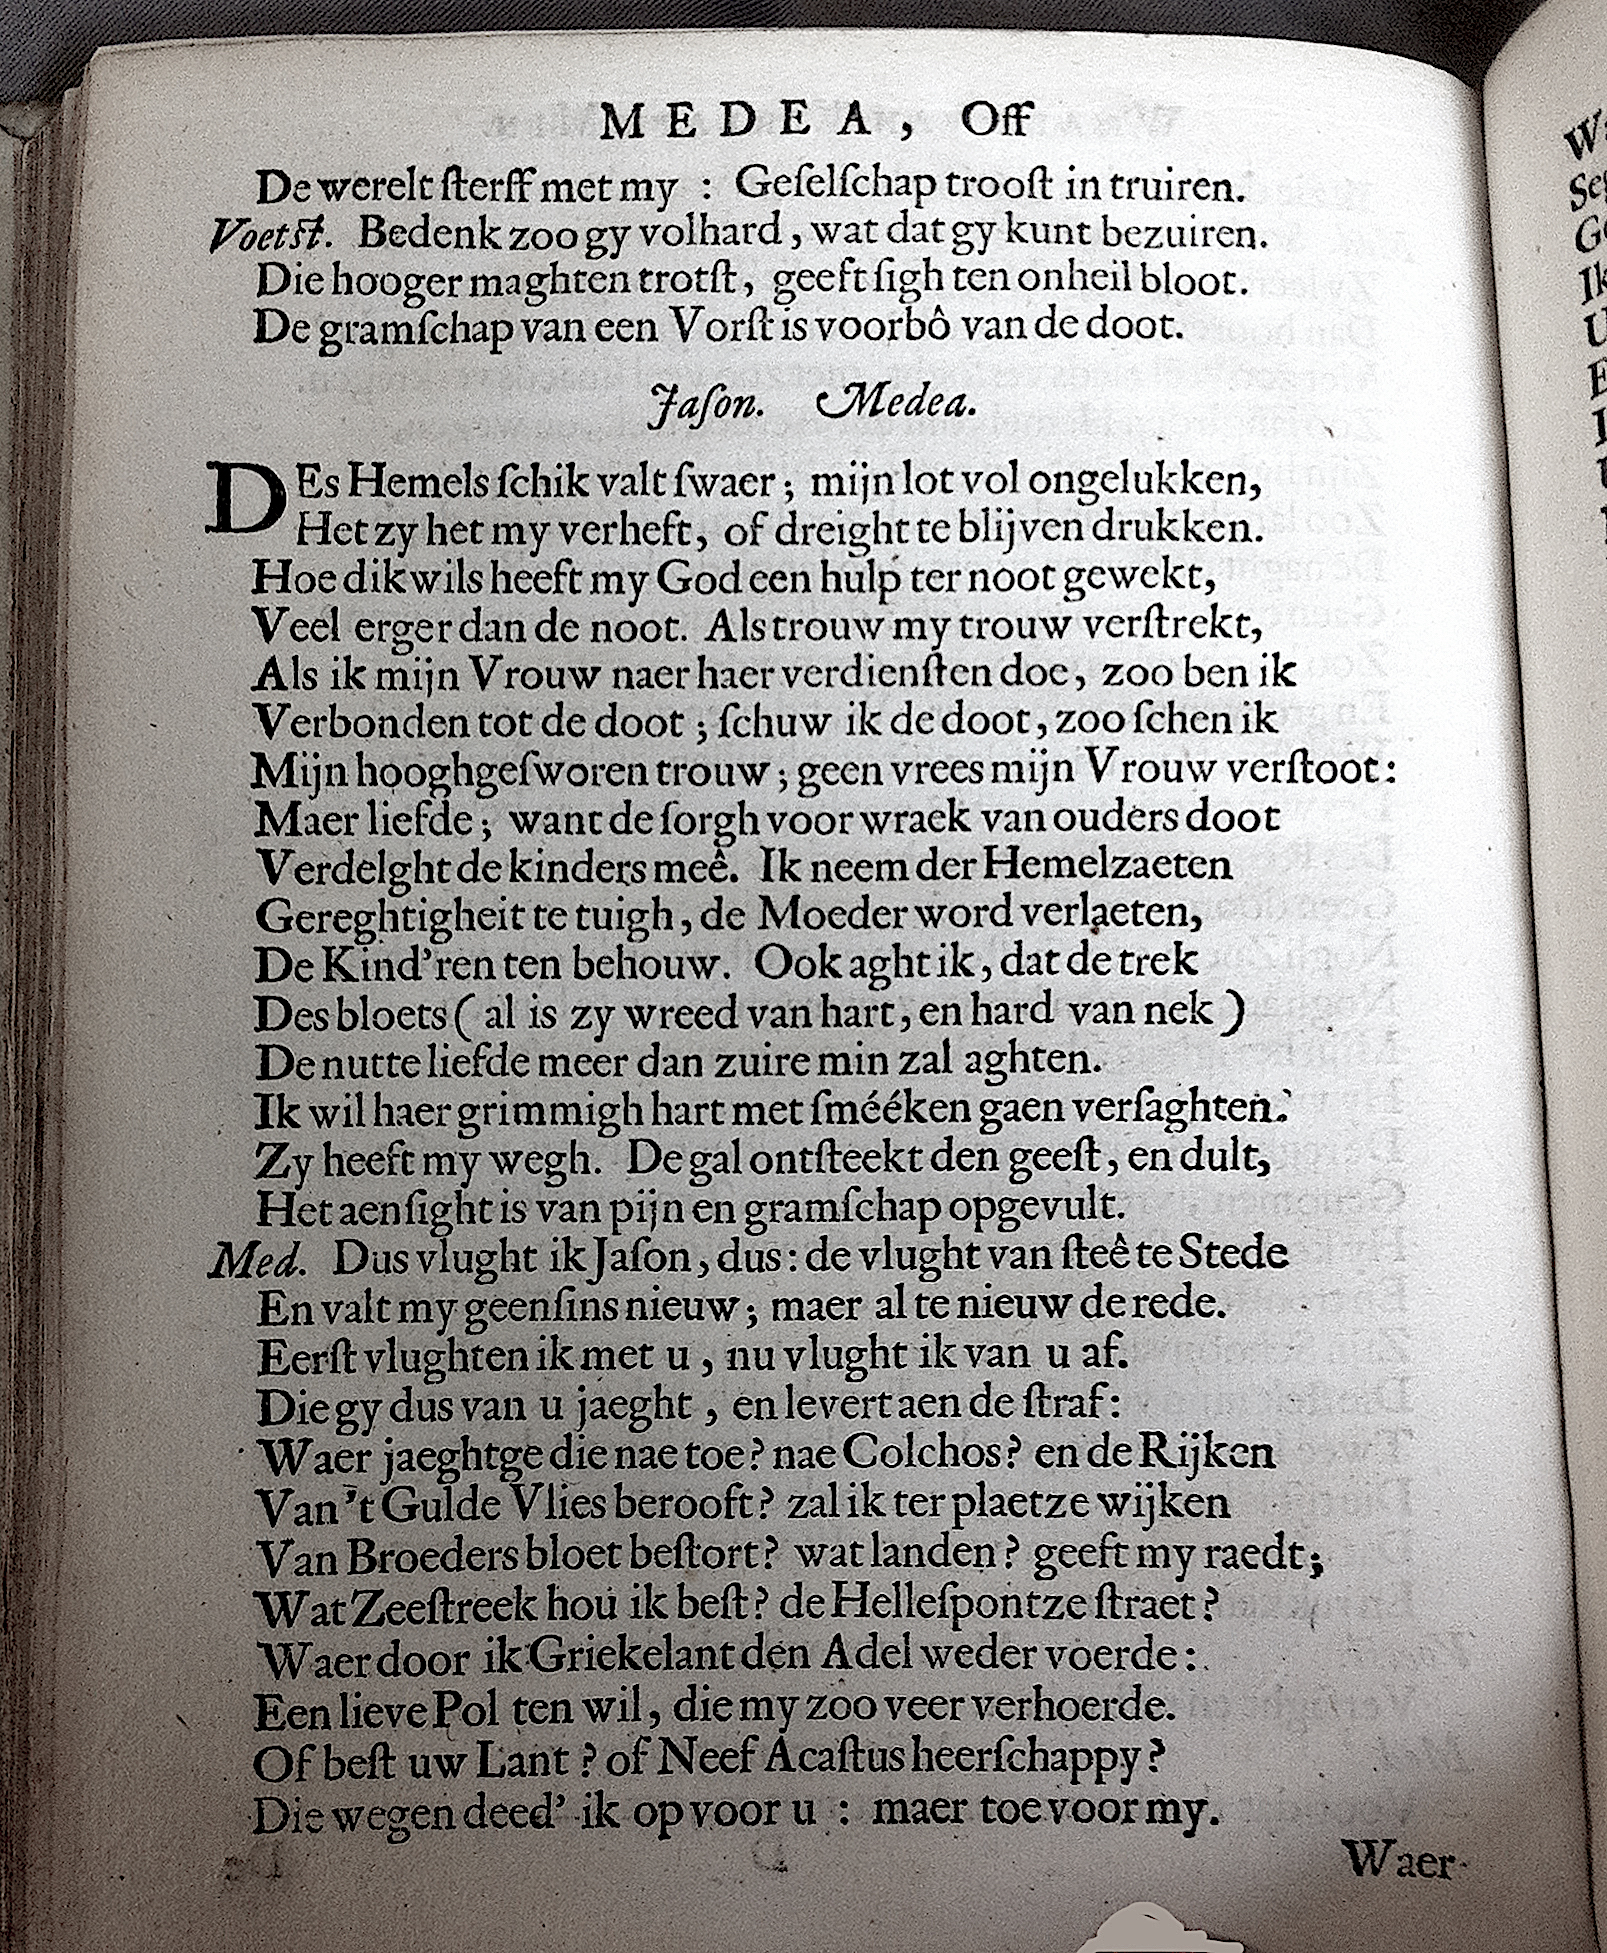 MEDEA, Off
De werelt ſterff met my : Geſelſchap trooſt in truiren.
Voetſt. Bedenk zoo gy volhard, wat dat gy kunt bezuiren.
Die hooger maghten trotſt, geeft ſigh ten onheil bloot.
De gramſchap van een Vorſt is voorbô van de doot.
Jaſon. Medea.
DEs Hemels ſchik valt ſwaer; mijn lot vol ongelukken,
Het zy het my verheft, of dreight te blijven drukken.
Hoe dikwils heeft my God een hulp ter noot gewekt,
Veel erger dan de noot. Als trouw my trouw verſtrekt,
Als ik mijn Vrouw naer haer verdienſten doe, zoo ben ik
Verbonden tot de doot; ſchuw ik de doot, zoo ſchen ik
Mijn hooghgeſworen trouw; geen vrees mijn Vrouw verſtoot:
Maer liefde; want de ſorgh voor wraek van ouders doot
Verdelght de kinders meê. Ik neem der Hemelzaeten
Gereghtigheit te tuigh, de Moeder word verlaeten,
De Kind'ren ten behouw. Ook aght ik, dat de trek
Des bloets ( al is zy wreed van hart, en hard van nek )
De nutte liefde meer dan zuire min zal aghten.
Ik wil haer grimmigh hart met ſmééken gaen verſaghten.
Zy heeft my wegh. De gal ontſteekt den geeſt, en dult,
Het aenſight is van pijn en gramſchap opgevult.
Med. Dus vlught ik Jaſon, dus: de vlught van ſteê te Stede
En valt my geenſins nieuw; maer al te nieuw de rede.
Eerſt vlughten ik met u, nu vlught ik van u af.
Die gy dus van u jaeght, en levert aen de ſtraf:
Waer jaeghtge die nae toe? nae Colchos? en de Rijken
Van 't Gulde Vlies berooft? zal ik ter plaetze wijken
Van Broeders bloet beſtort? wat landen? geeft my raedt;
Wat Zeeſtreek hou ik beſt? de Helleſpontze ſtraet?
Waer door ik Griekelant den Adel weder voerde:
Een lieve Pol ten wil, die my zoo veer verhoerde.
Of beſt uw Lant? of Neef Acaſtus heerſchappy?
Die wegen deed' ik op voor u : maer toe voor my.
Waer